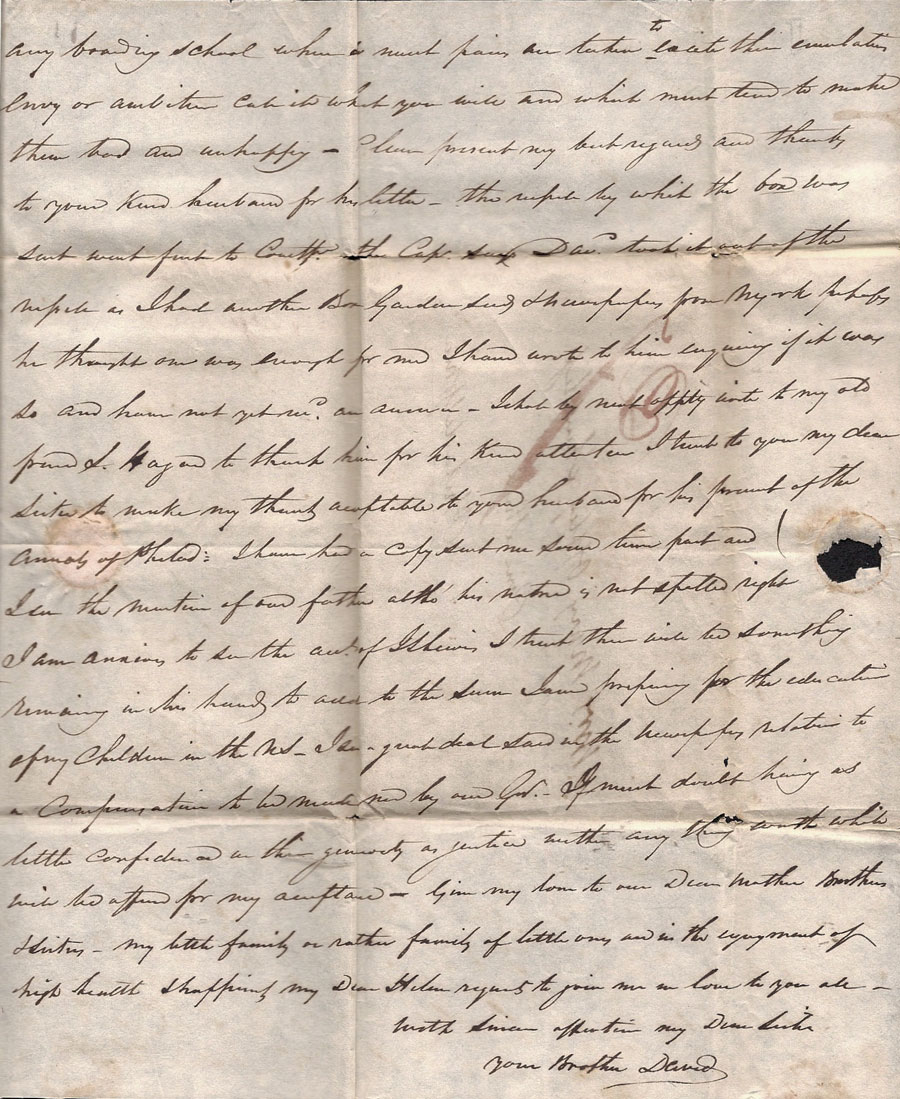 any boarding school where so much pains are taken to excite their emulation
Envy or ambition call it what you will and which must tend to make
them bad and unhappy – Please present my best regards and thanks
to your kind husband for his letter – the vessel by which the box was
sent went first to Constple. the Capt. says Dav. took it out of the
vessel as I had another Box Garden seeds & newspapers from NYork perhaps
he thought one was enough for me I have wrote to him enquiring if it was
so and have not yet recd. an answer – I shall by next oppty write to my old
friend S. Hazard to thank him for his kind attention I trust to you my dear
sister to make my thanks acceptable to your husband for his present of the
Annals of Philad: I have had a copy sent me some time past and
I see the mention of our father altho' his name is not spelled right
I am anxious to see the acct. of I trust there will be something
remaining in his hands to add to the sum I am preparing for the education
of my Children in the US – I see a great deal said in the Newspapers relative to
a Compensation to be made me by our Govt. – I much doubt having as
little confidence in their generosity as justice neither any thing worth while
will be offered for my acceptance – Give my love to our Dear Mother Brothers
& Sisters – my little family or rather family of little ones are in the enjoyment of
high health & happiness my Dear Helen requests to join me in love to you all –
With Sincere affection my Dear Sister
your Brother David